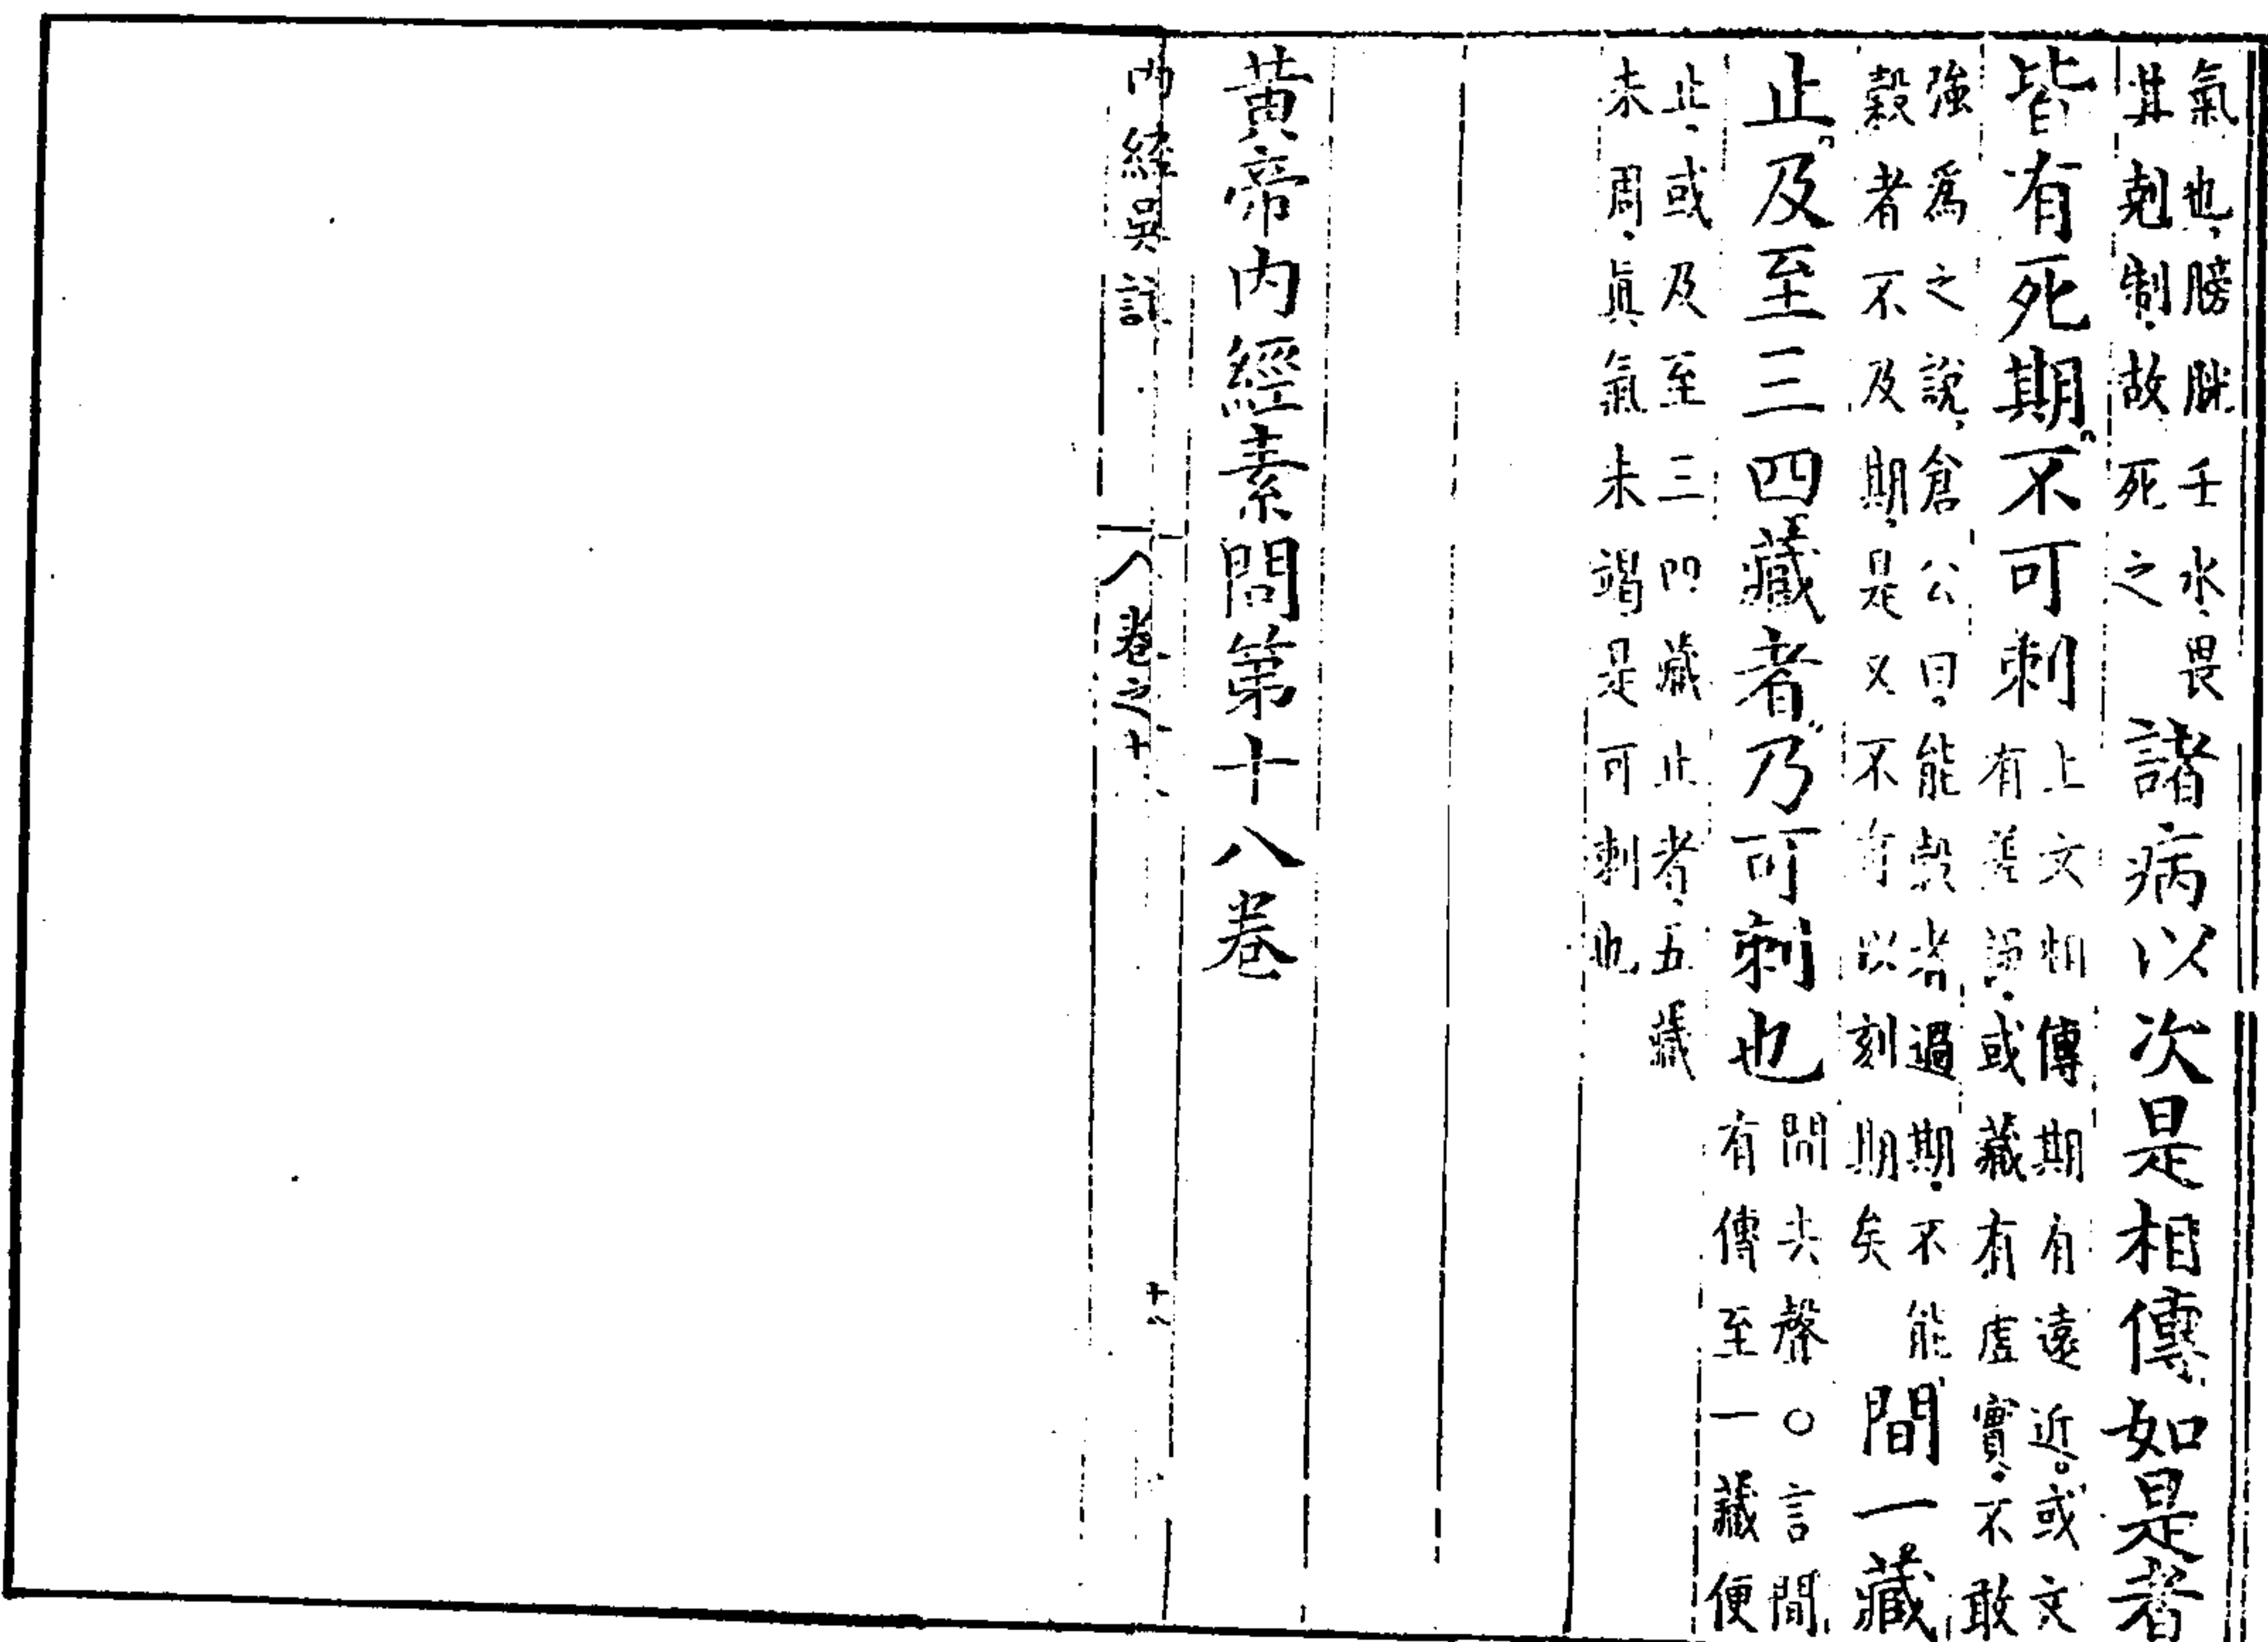 氣也膀胱壬水畏
其剋制故死之
諸病以次是相傳如是者
皆有死期不可刺
上文相傳期有遠近或文
有差誤或藏有虛實不敢
強爲之說倉公曰能穀者過期不能
穀者不及期是又不可以刻期矣
間一藏
止及至三四藏者乃可刺也
間去聲○言間
有傳至一藏便
止或及至三四藏止者五藏
未周眞氣未竭是可刺也
黃帝內經素問第十八卷
內經吳註
卷之十八